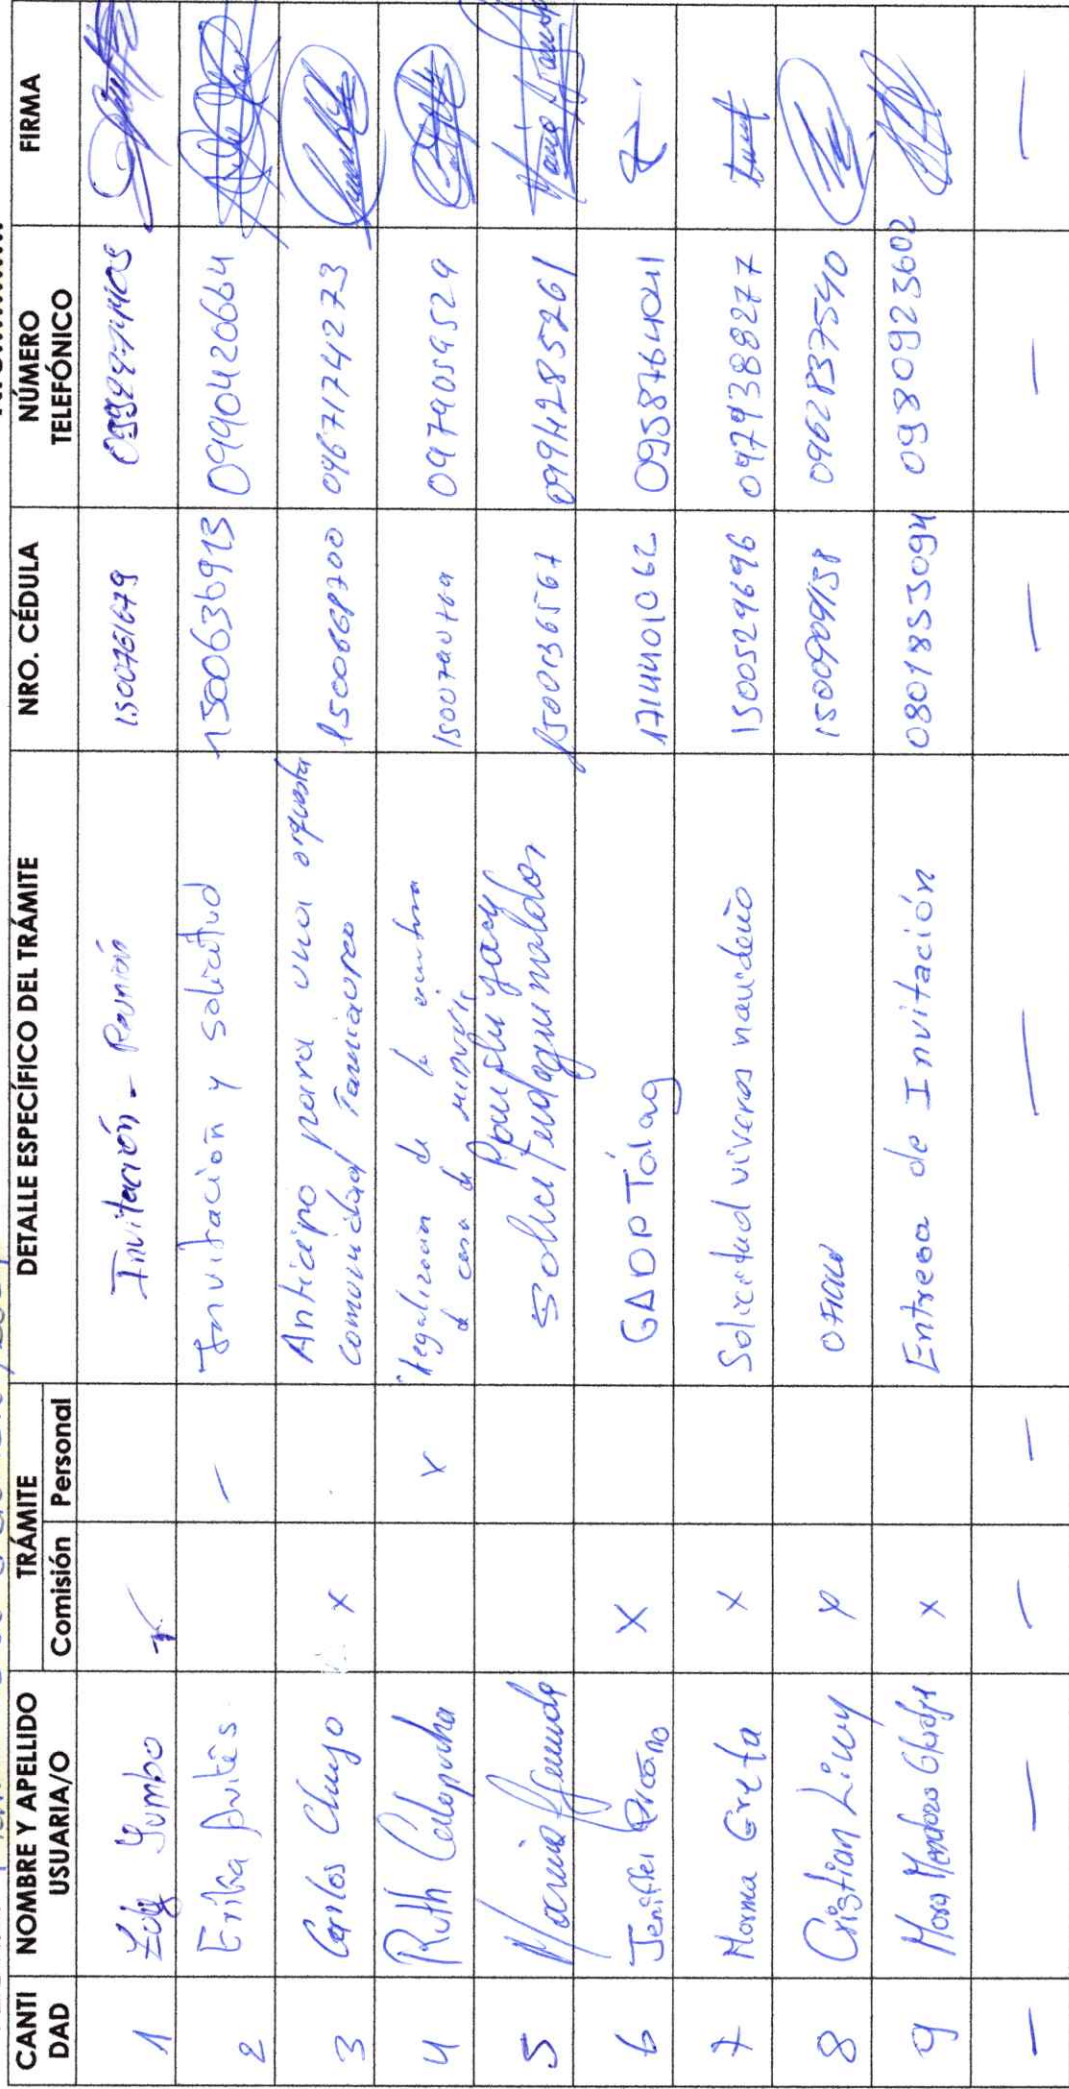 CANTI DAD | NOMBRE Y APELLIDO USUARIA/O | TRÁMITE Comisión Personal | DETALLE ESPECÍFICO DEL TRÁMITE | NRO. CÉDULA | NÚMERO TELEFÓNICO | FIRMA
1 | Yumbo | Invitación - Reunión | 1500761679
2 | Erika Avilés | – | Invitación y solicitud | 1500636913 | 0990420664
3 | Carlos Chugo | x | Anticipo para una orquesta comunidad | 1500668700 | 0967174273
4 | Ruth Calapucha | x | legalización de la escritura de casa de MIDUVI | 0979059529
5 | 0994285261
6 | Jeniffer | X | GADPTálag | 1714401062 | 0958764041
7 | Norma Grefa | x | Solicitud viveres navideño | 1500529696 | 0979388277
8 | Cristian Licuy | x | OFICIO | 1500909158 | 0962837540
9 | Mora Mendoza Gladys | x | Entrega de Invitación | 0801853094 | 0980923602
– | – | – | – | – | – | – | –